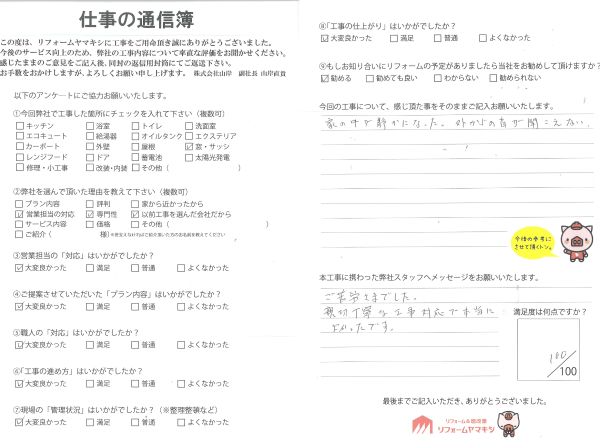 仕事の通信簿
この度は、リフォームヤマキシに工事をご用命頂き誠にありがとうございました。
今後のサービス向上のため、弊社の工事内容について率直な評価をお聞かせください。
感じたままのご意見をご記入後、同封の返信用封筒にてご返送下さい。
お手数をおかけしますが、よろしくお願い申し上げます。 株式会社山岸 副社長 山岸直貴
以下のアンケートにご協力お願いいたします。
①今回弊社で工事した箇所にチェックを入れて下さい（複数可）
□キッチン □浴室 □トイレ □洗面室
□エコキュート □給湯器 □オイルタンク □エクステリア
□カーポート □外壁 □屋根 ☑窓・サッシ
□レンジフード □ドア □蓄電池 □太陽光発電
□修理・小工事 □改装・内装 □その他（ ）
②弊社を選んで頂いた理由を教えて下さい（複数可）
□プラン内容 □評判 □家から近かったから
☑営業担当の対応 ☑専門性 ☑以前工事を頼んだ会社だから
□サービス内容 □価格 □その他（ ）
□ご紹介（ 様）※差支えなければご紹介頂いた方のお名前を教えてください
③営業担当の「対応」はいかがでしたか？
☑大変良かった □満足 □普通 □よくなかった
④ご提案させていただいた「プラン内容」はいかがでしたか？
☑大変良かった □満足 □普通 □よくなかった
⑤職人の「対応」はいかがでしたか？
☑大変良かった □満足 □普通 □よくなかった
⑥「工事の進め方」はいかがでしたか？
☑大変良かった □満足 □普通 □よくなかった
⑦現場の「管理状況」はいかがでしたか？（※整理整頓など）
☑大変良かった □満足 □普通 □よくなかった
⑧「工事の仕上がり」はいかがでしたか？
☑大変良かった □満足 □普通 □よくなかった
⑨もしお知り合いにリフォームの予定がありましたら当社をお勧めして頂けますか？
☑勧める □勧めても良い □わからない □勧められない
今回の工事について、感じ頂た事をそのままご記入お願いいたします。
家の中が静かになった。外からの音が聞こえない。
今後の参考に
させて頂くトン。
本工事に携わった弊社スタッフへメッセージをお願いいたします。
ご苦労さまでした。
親切丁寧な工事対応で本当に
よかったです。
満足度は何点ですか？
100/100
最後までご記入いただき、ありがとうございました。
リフォーム&増改築
リフォームヤマキシ